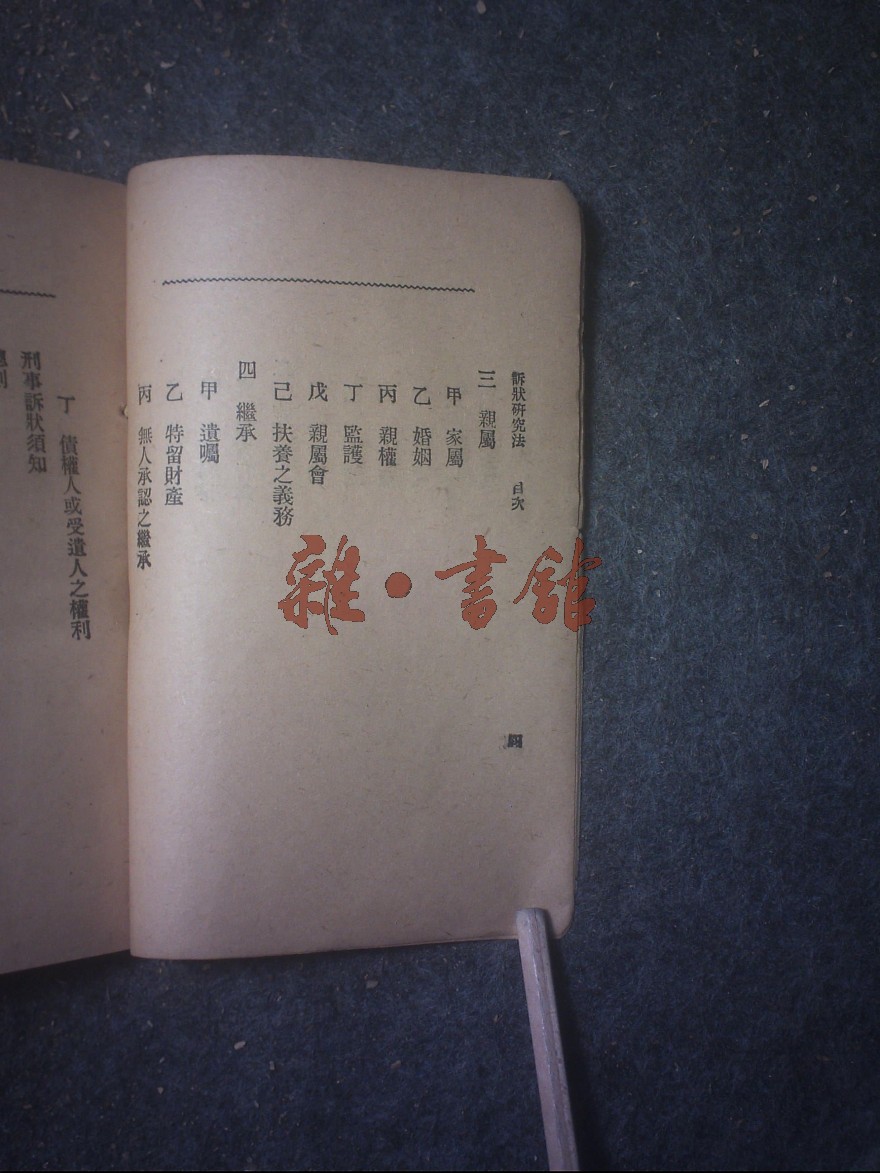 訴狀硏究法　目次
三　親屬
甲　家屬
乙　婚姻
丙　親權
丁　監護
戊　親屬會
己　扶養之義務
四　繼承
甲　遺囑
乙　特留財產
丙　無人承認之繼承
四
丁　債權人或受遺人之權利
刑事訴狀須知
雜·書館